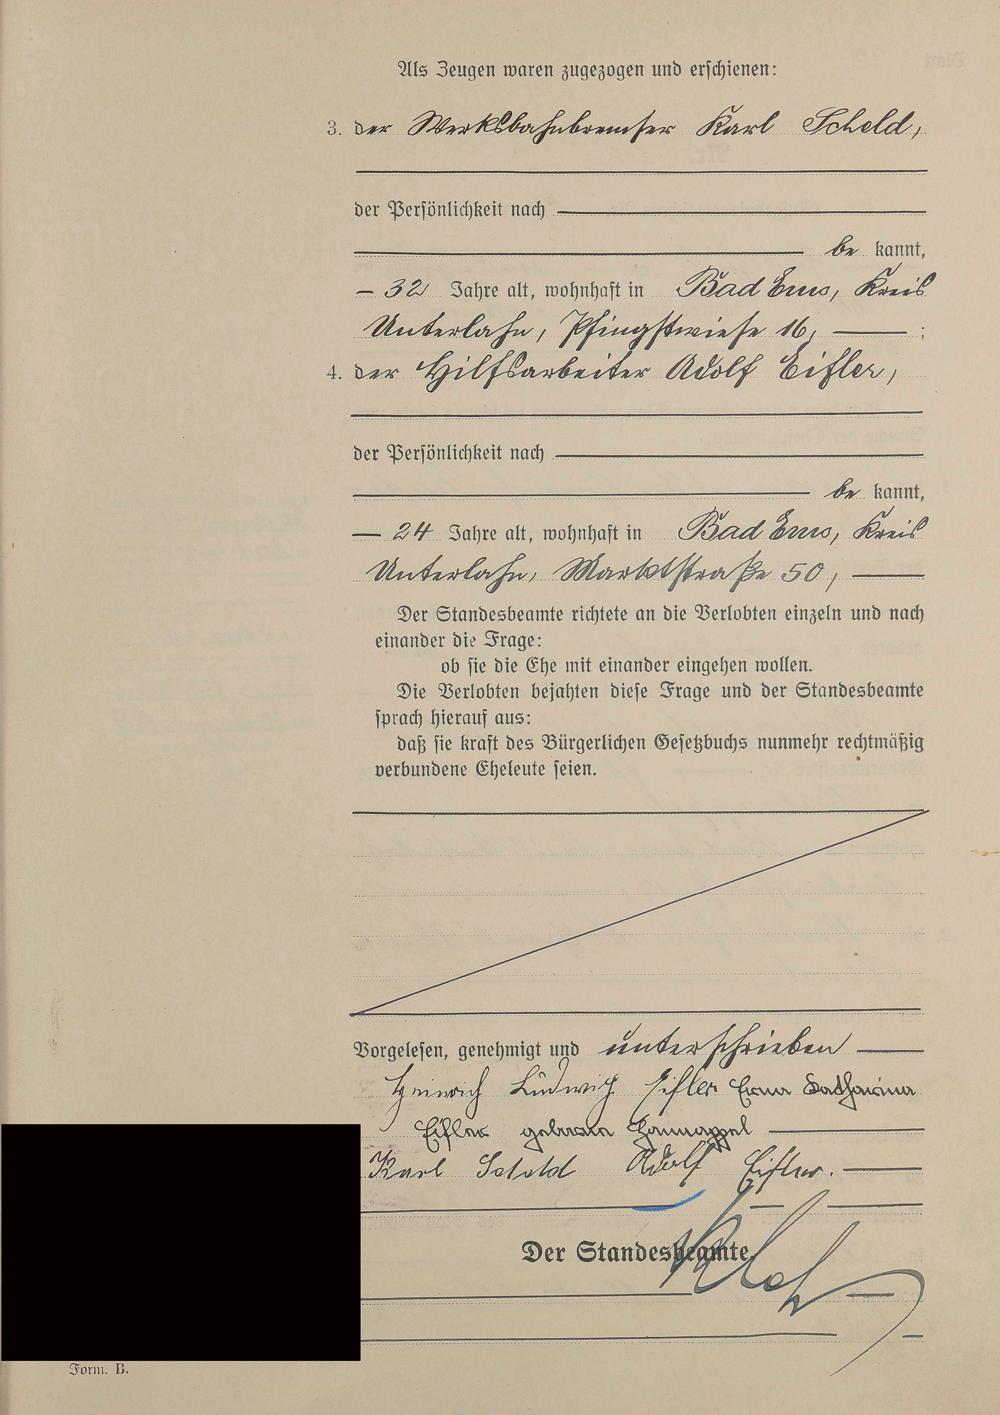 Als Zeugen waren zugezogen und erschienen:
3. der Werksbahnbremser Karl Scheld,
der Persönlichkeit nach
be kannt,
32 Jahre alt, wohnhaft in Bad Ems, Kreis
Unterlahn, Pfingstwiese 16, ;
4. der Hilfsarbeiter Adolf Eifler,
der Persönlichkeit nach
be kannt,
24 Jahre alt, wohnhaft in Bad Ems, Kreis
Unterlahn, Marktstraße 50,
Der Standesbeamte richtete an die Verlobten einzeln und nach
einander die Frage:
ob sie die Ehe mit einander eingehen wollen.
Die Verlobten bejahten diese Frage und der Standesbeamte
sprach hierauf aus:
daß sie kraft des Bürgerlichen Gesetzbuchs nunmehr rechtmäßig
verbundene Eheleute seien.
Vorgelesen, genehmigt und unterschrieben
Heinrich Ludwig Eifler Erna Katharina
Eifler geborene Hannappel
Karl Scheld Adolf Eifler.
Der Standesbeamte.
Form. B.